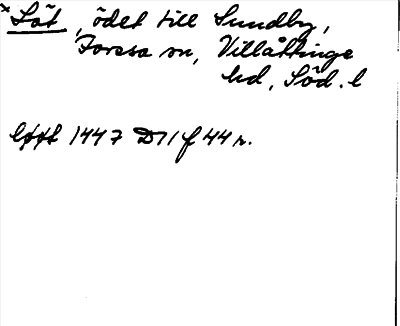 *Löt, ödet till Sundby,
Forssa sn, Villåttinge
hd, Söd. l
1447 D11 f 44 r.